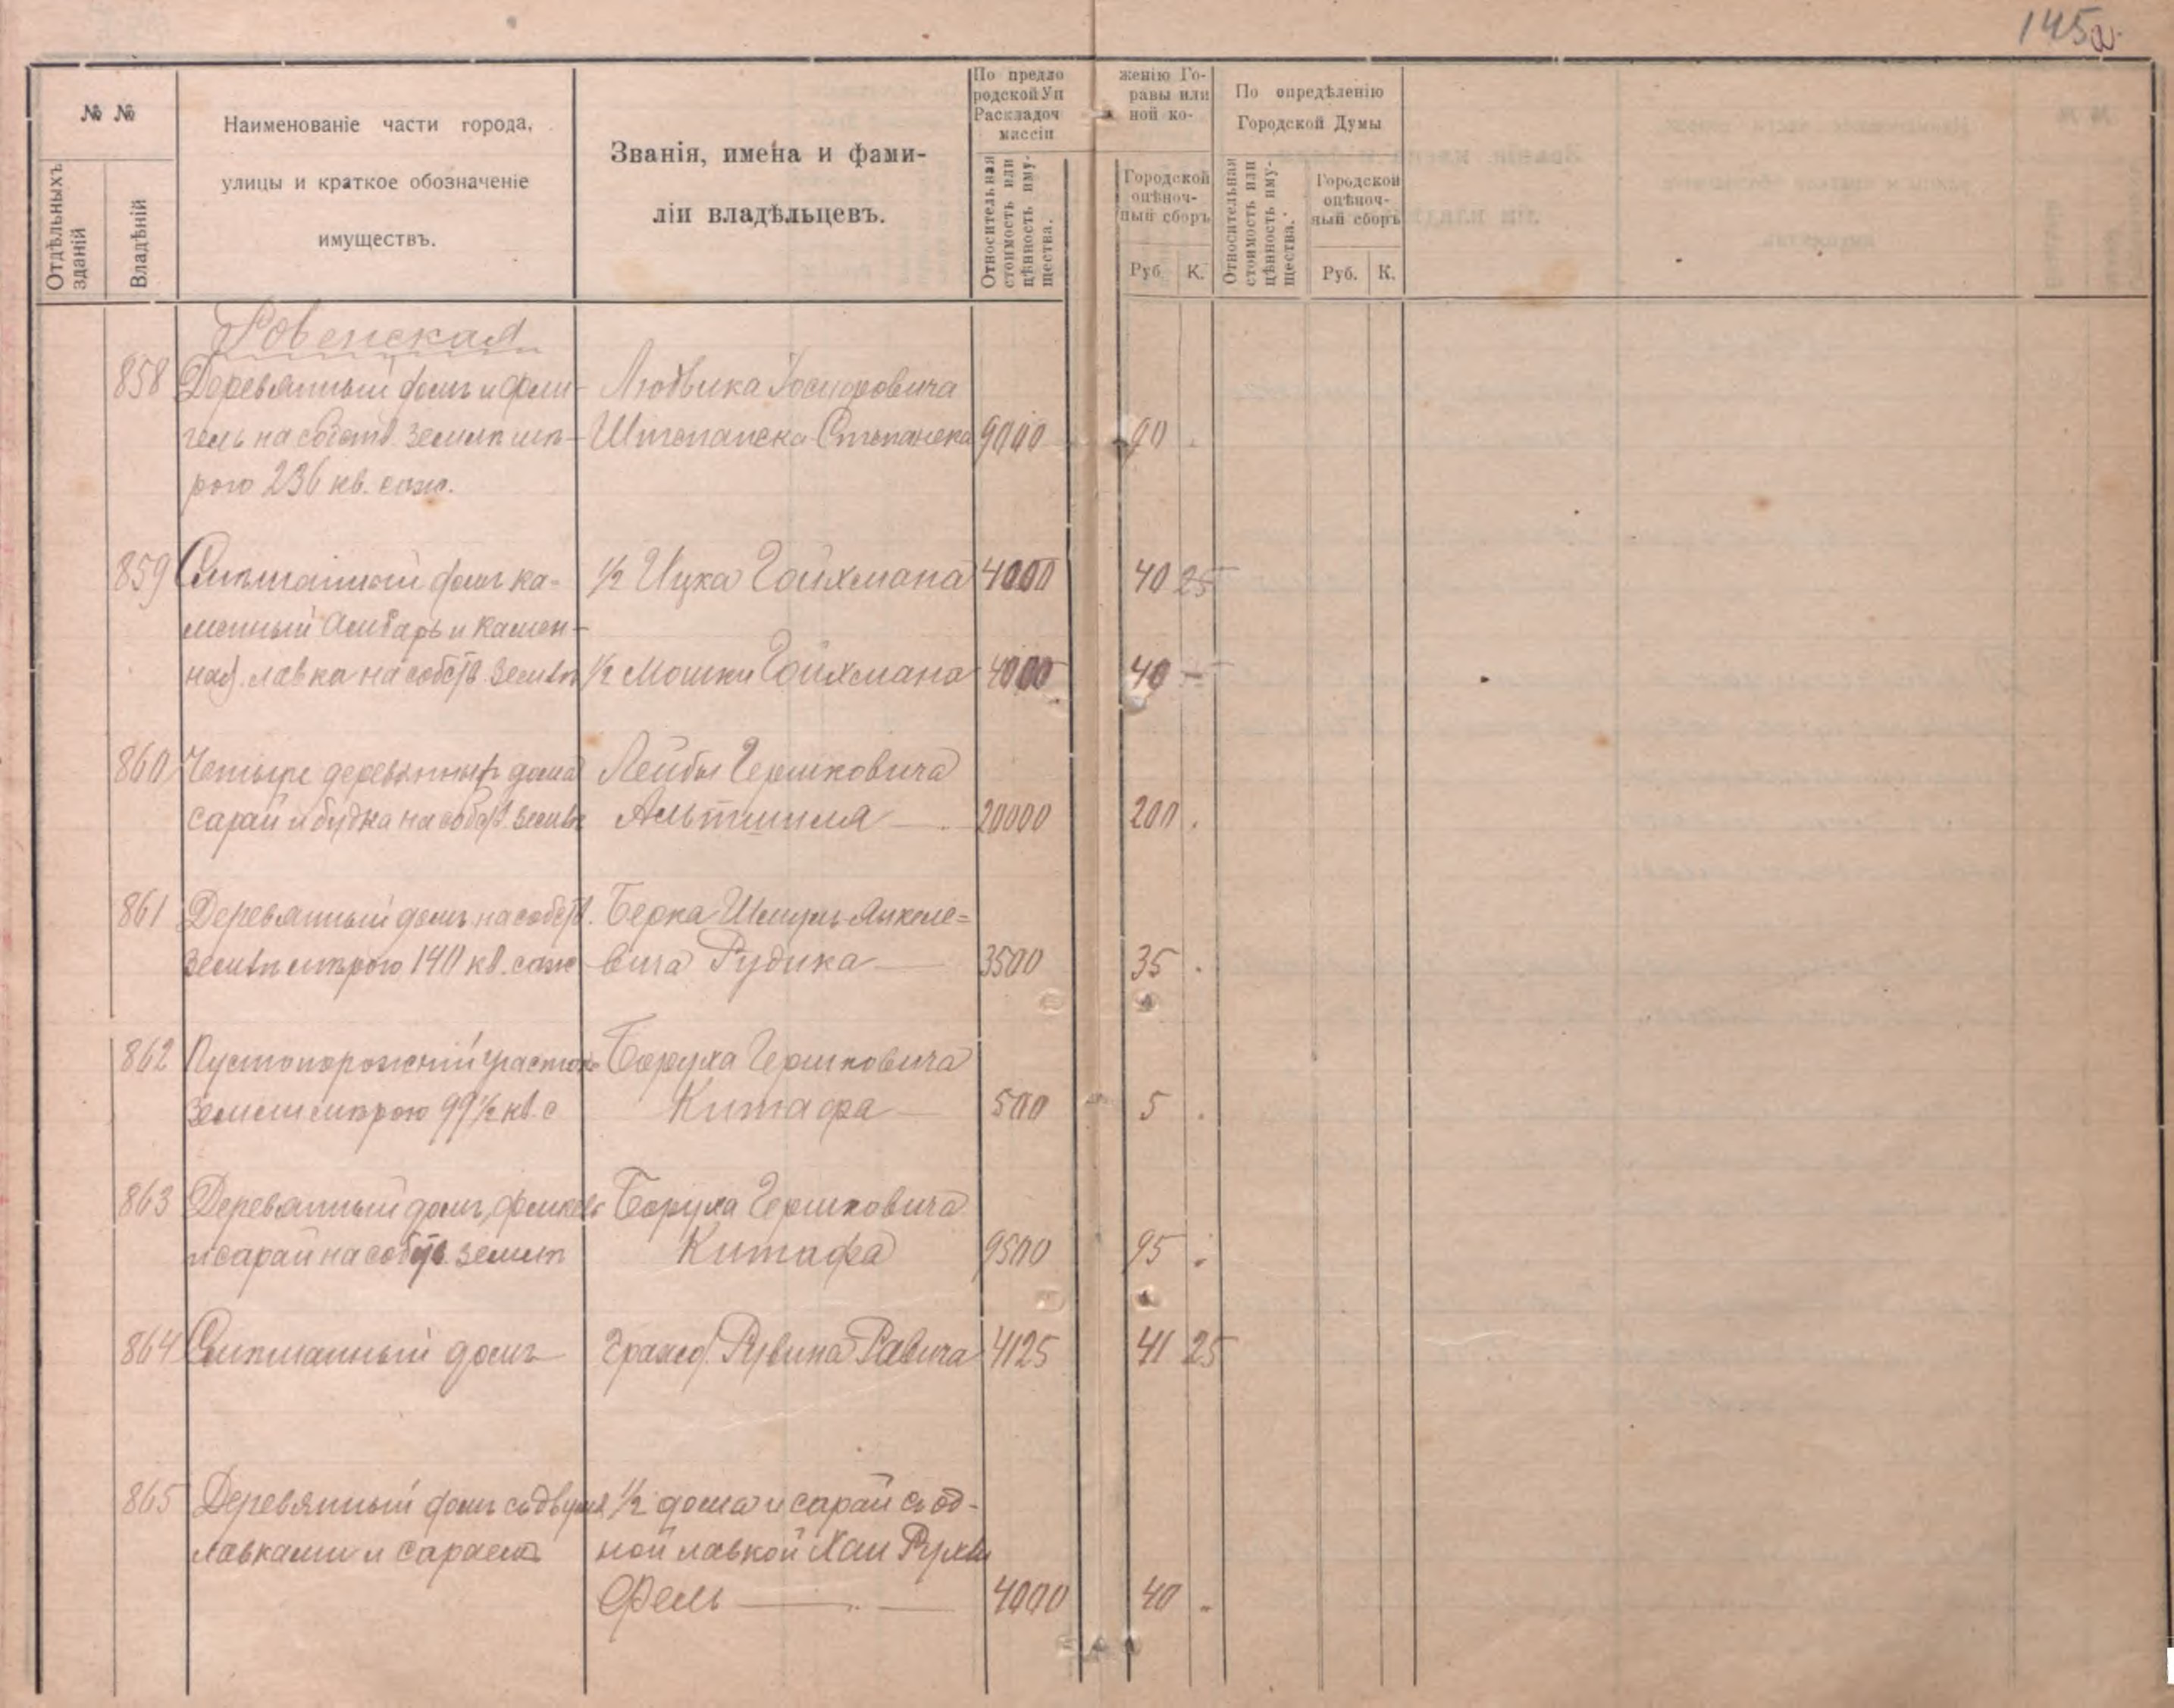 145а
№ №
Отдѣльныхъ зданій
Владѣній
Наименованіе части города,
улицы и краткое обозначеніе
имуществъ.
Званія, имена и фами-
ліи владѣльцевъ.
По предло женію Го-
родской Уп равы или
Раскладоч ной ко-
миссіи
Относительная
стоимость или
цѣнность иму-
щества.
Городской
оцѣноч-
ный сборъ
Руб. К.
По опредѣленію
Городской Думы
Относительная
стоимость или
цѣнность иму-
щества.
Городской
оцѣноч-
ный сборъ
Руб. К.
Ровенская
858 Деревянный домъ и фли- Людвика Іосифовича
гель на собств. землѣ мѣ- Штепанека Степанека 9000 90 .
рою 236 кв. саж.
859 Смѣшанный домъ ка- ½ Ицка Гойхмана 4000 40 25
менный амбаръ и камен-
ная лавка на собств. землѣ ½ Мошки Гойхмана 4000 40 -
860 Четыре деревянныхъ дома Лейбы Гершковича
сарай и будка на собств. землѣ Альтшиля 20000 200 .
861 Деревянный домъ на собств. Берка Шмуль-Янкеле-
землѣ мѣрою 140 кв. саж вича Рудика 3500 35 .
862 Пустопорожній участокъ Боруха Гершковича
земли мѣрою 99½ кв. с Китафа 500 5 .
863 Деревянный домъ, флигель Боруха Гершковича
и сарай на собств. землѣ Китафа 9500 95 .
864 Смѣшанный домъ Рувина Равича 4125 41 25
865 Деревянный домъ съ двумя ½ дома и сарай съ од-
лавками и сараемъ ной лавкой Хаи Рухли
Фель 4000 40 .